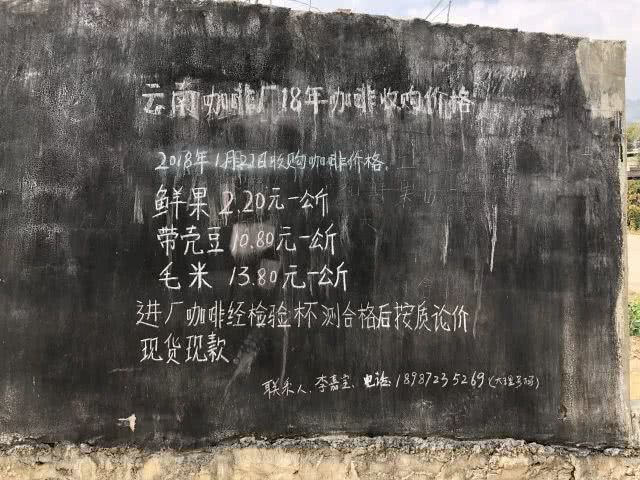 云南咖啡厂18年咖啡收购价格
2018年1月27日收购咖啡价格.
鲜果 2.20元一公斤
带壳豆 10.80元一公斤
毛米 13.80元一公斤
进厂咖啡经检验杯测合格后按质论价
现货现款
联系人.李嘉宝. 电话 18987235269